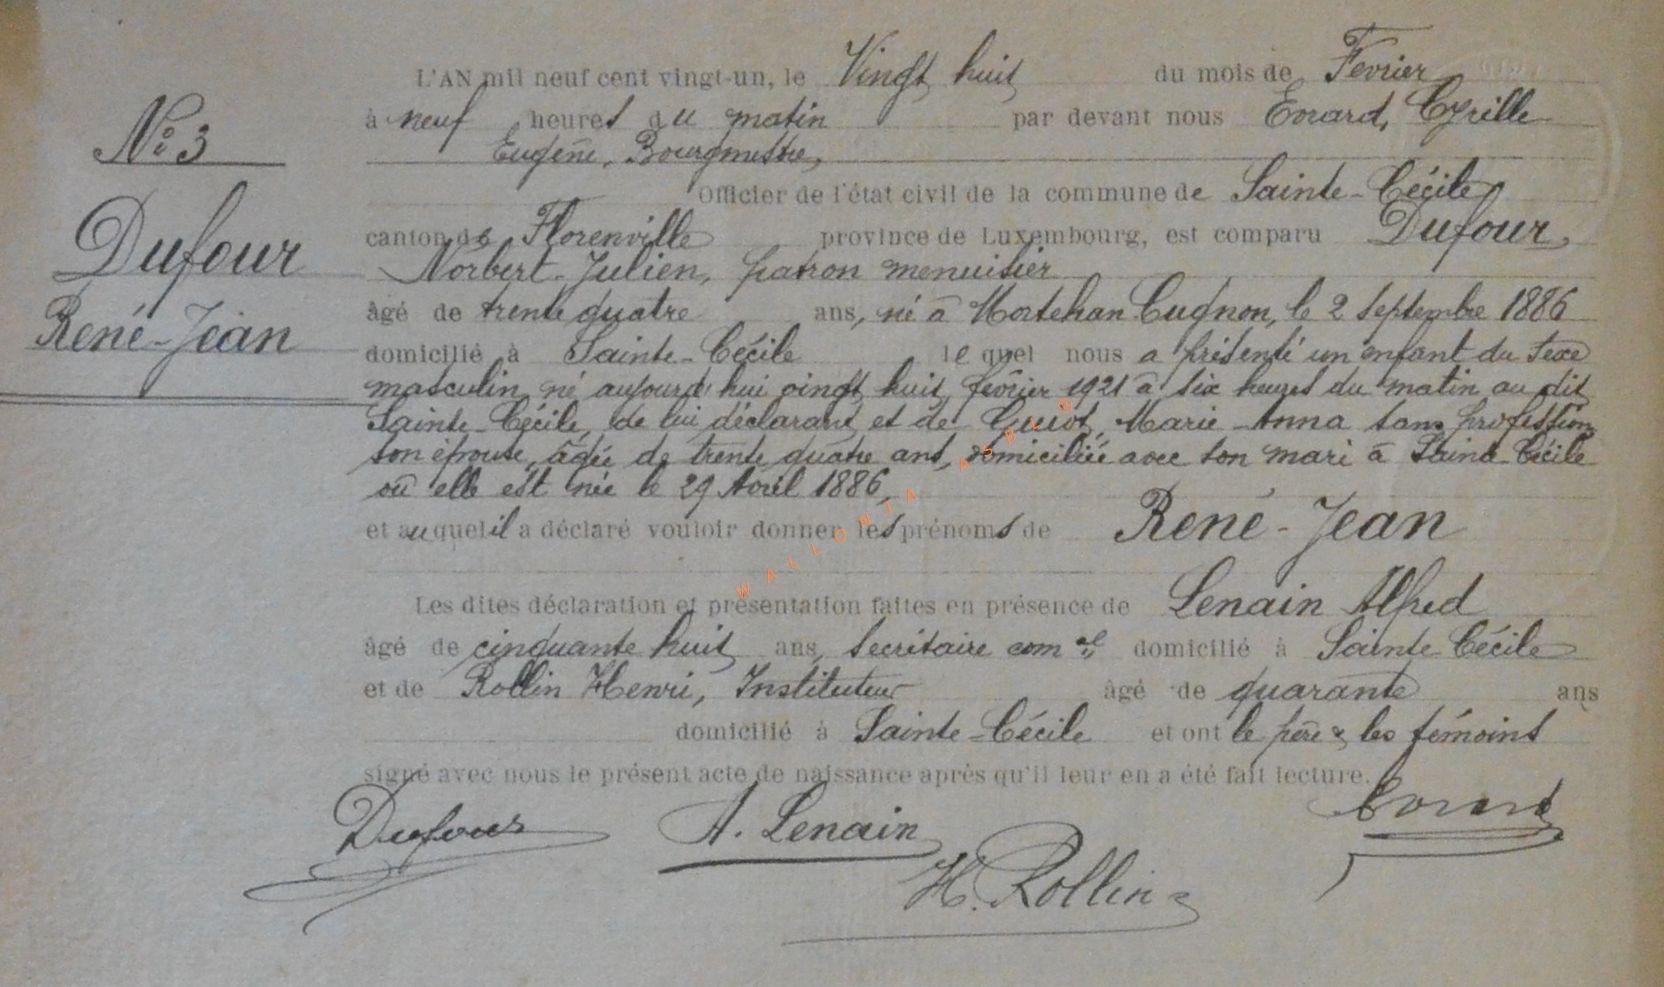 L'AN mil neuf cent vingt-un, le Vingt huit du mois de Fevrier
à neuf heures du matin par devant nous Evrard, Cyrille
Nº 3
Eugène, Bourgmestre,
Officier de l'état civil de la commune de Sainte-Cécile
canton de Florenville province de Luxembourg, est comparu Dufour,
Dufour
Norbert-Julien, patron menuisier
âgé de trente quatre ans, né à Mortehan Cugnon, le 2 Septembre 1886
René-Jean
domicilié à Sainte-Cécile lequel nous a présenté un enfant du sexe
masculin né aujourd'hui vingt huit février 1921 à six heures du matin au dit
Sainte-Cécile, de lui déclarant et de Guiot, Marie-Anna sans profession
son épouse, âgée de trente quatre ans, domiciliée avec son mari à Sainte-Cécile
où elle est née le 29 Avril 1886,
et auquel il a déclaré vouloir donner les prénoms de René-Jean
WALLONIA ASBL ©
Les dites déclaration et présentation faites en présence de Lenain Alfred
âgé de cinquante huit ans, Secrétaire com al domicilié à Sainte Cécile
et de Rollin Henri, Instituteur âgé de quarante ans
domicilié à Sainte-Cécile et ont le père & les témoins
signé avec nous le présent acte de naissance après qu'il leur en a été fait lecture.
Dufour A. Lenain Evrard
H. Rollin